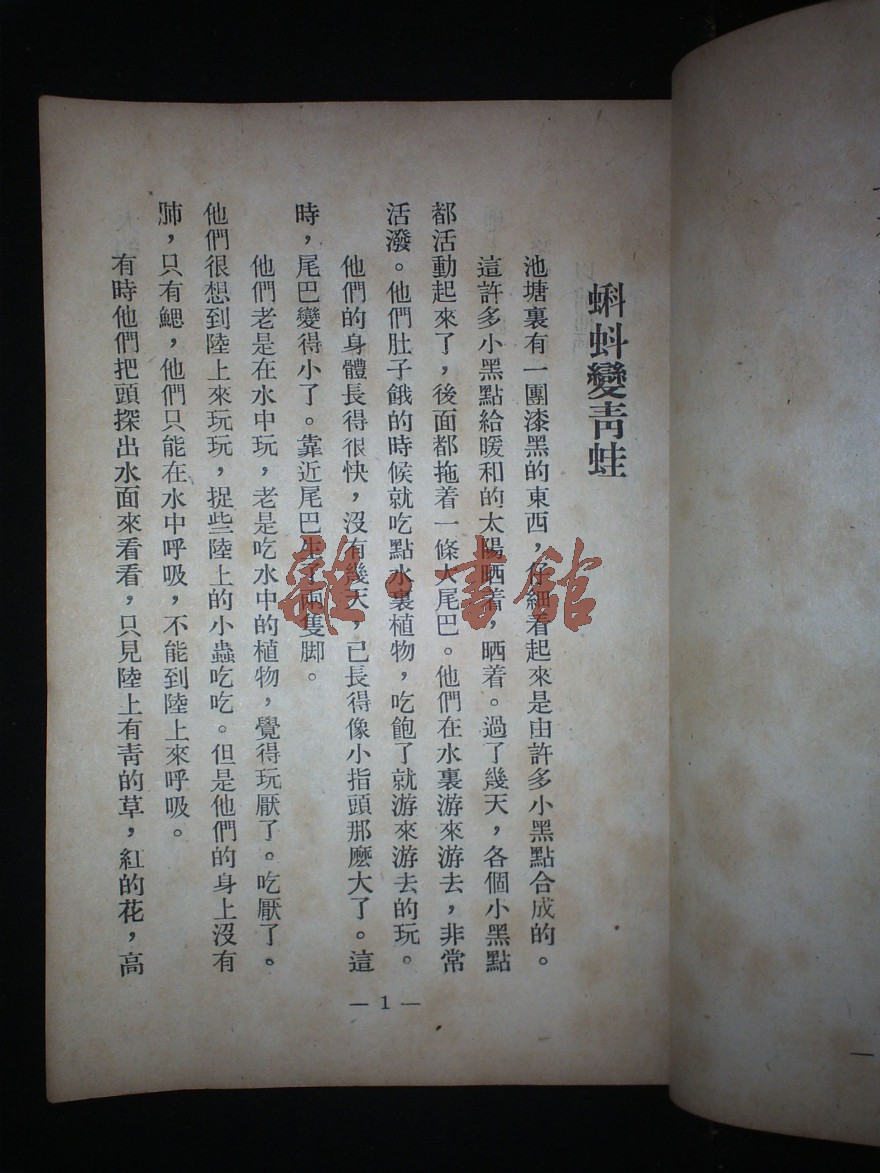 蝌蚪變青蛙
池塘裏有一團漆黑的東西，仔細看起來是由許多小黑點合成的。
這許多小黑點給暖和的太陽晒着，晒着。過了幾天，各個小黑點
都活動起來了，後面都拖着一條大尾巴。他們在水裏游來游去，非常
活潑。他們肚子餓的時候就吃點水裏植物，吃飽了就游來游去的玩。
他們的身體長得很快，沒有幾天，已長得像小指頭那麽大了。這
時，尾巴變得小了。靠近尾巴生了兩隻脚。
他們老是在水中玩，老是吃水中的植物，覺得玩厭了。吃厭了。
他們很想到陸上來玩玩，捉些陸上的小蟲吃吃。但是他們的身上沒有
肺，只有鰓，他們只能在水中呼吸，不能到陸上來呼吸。
有時他們把頭探出水面來看看，只見陸上有青的草，紅的花，高
— 1 —
雜·書館